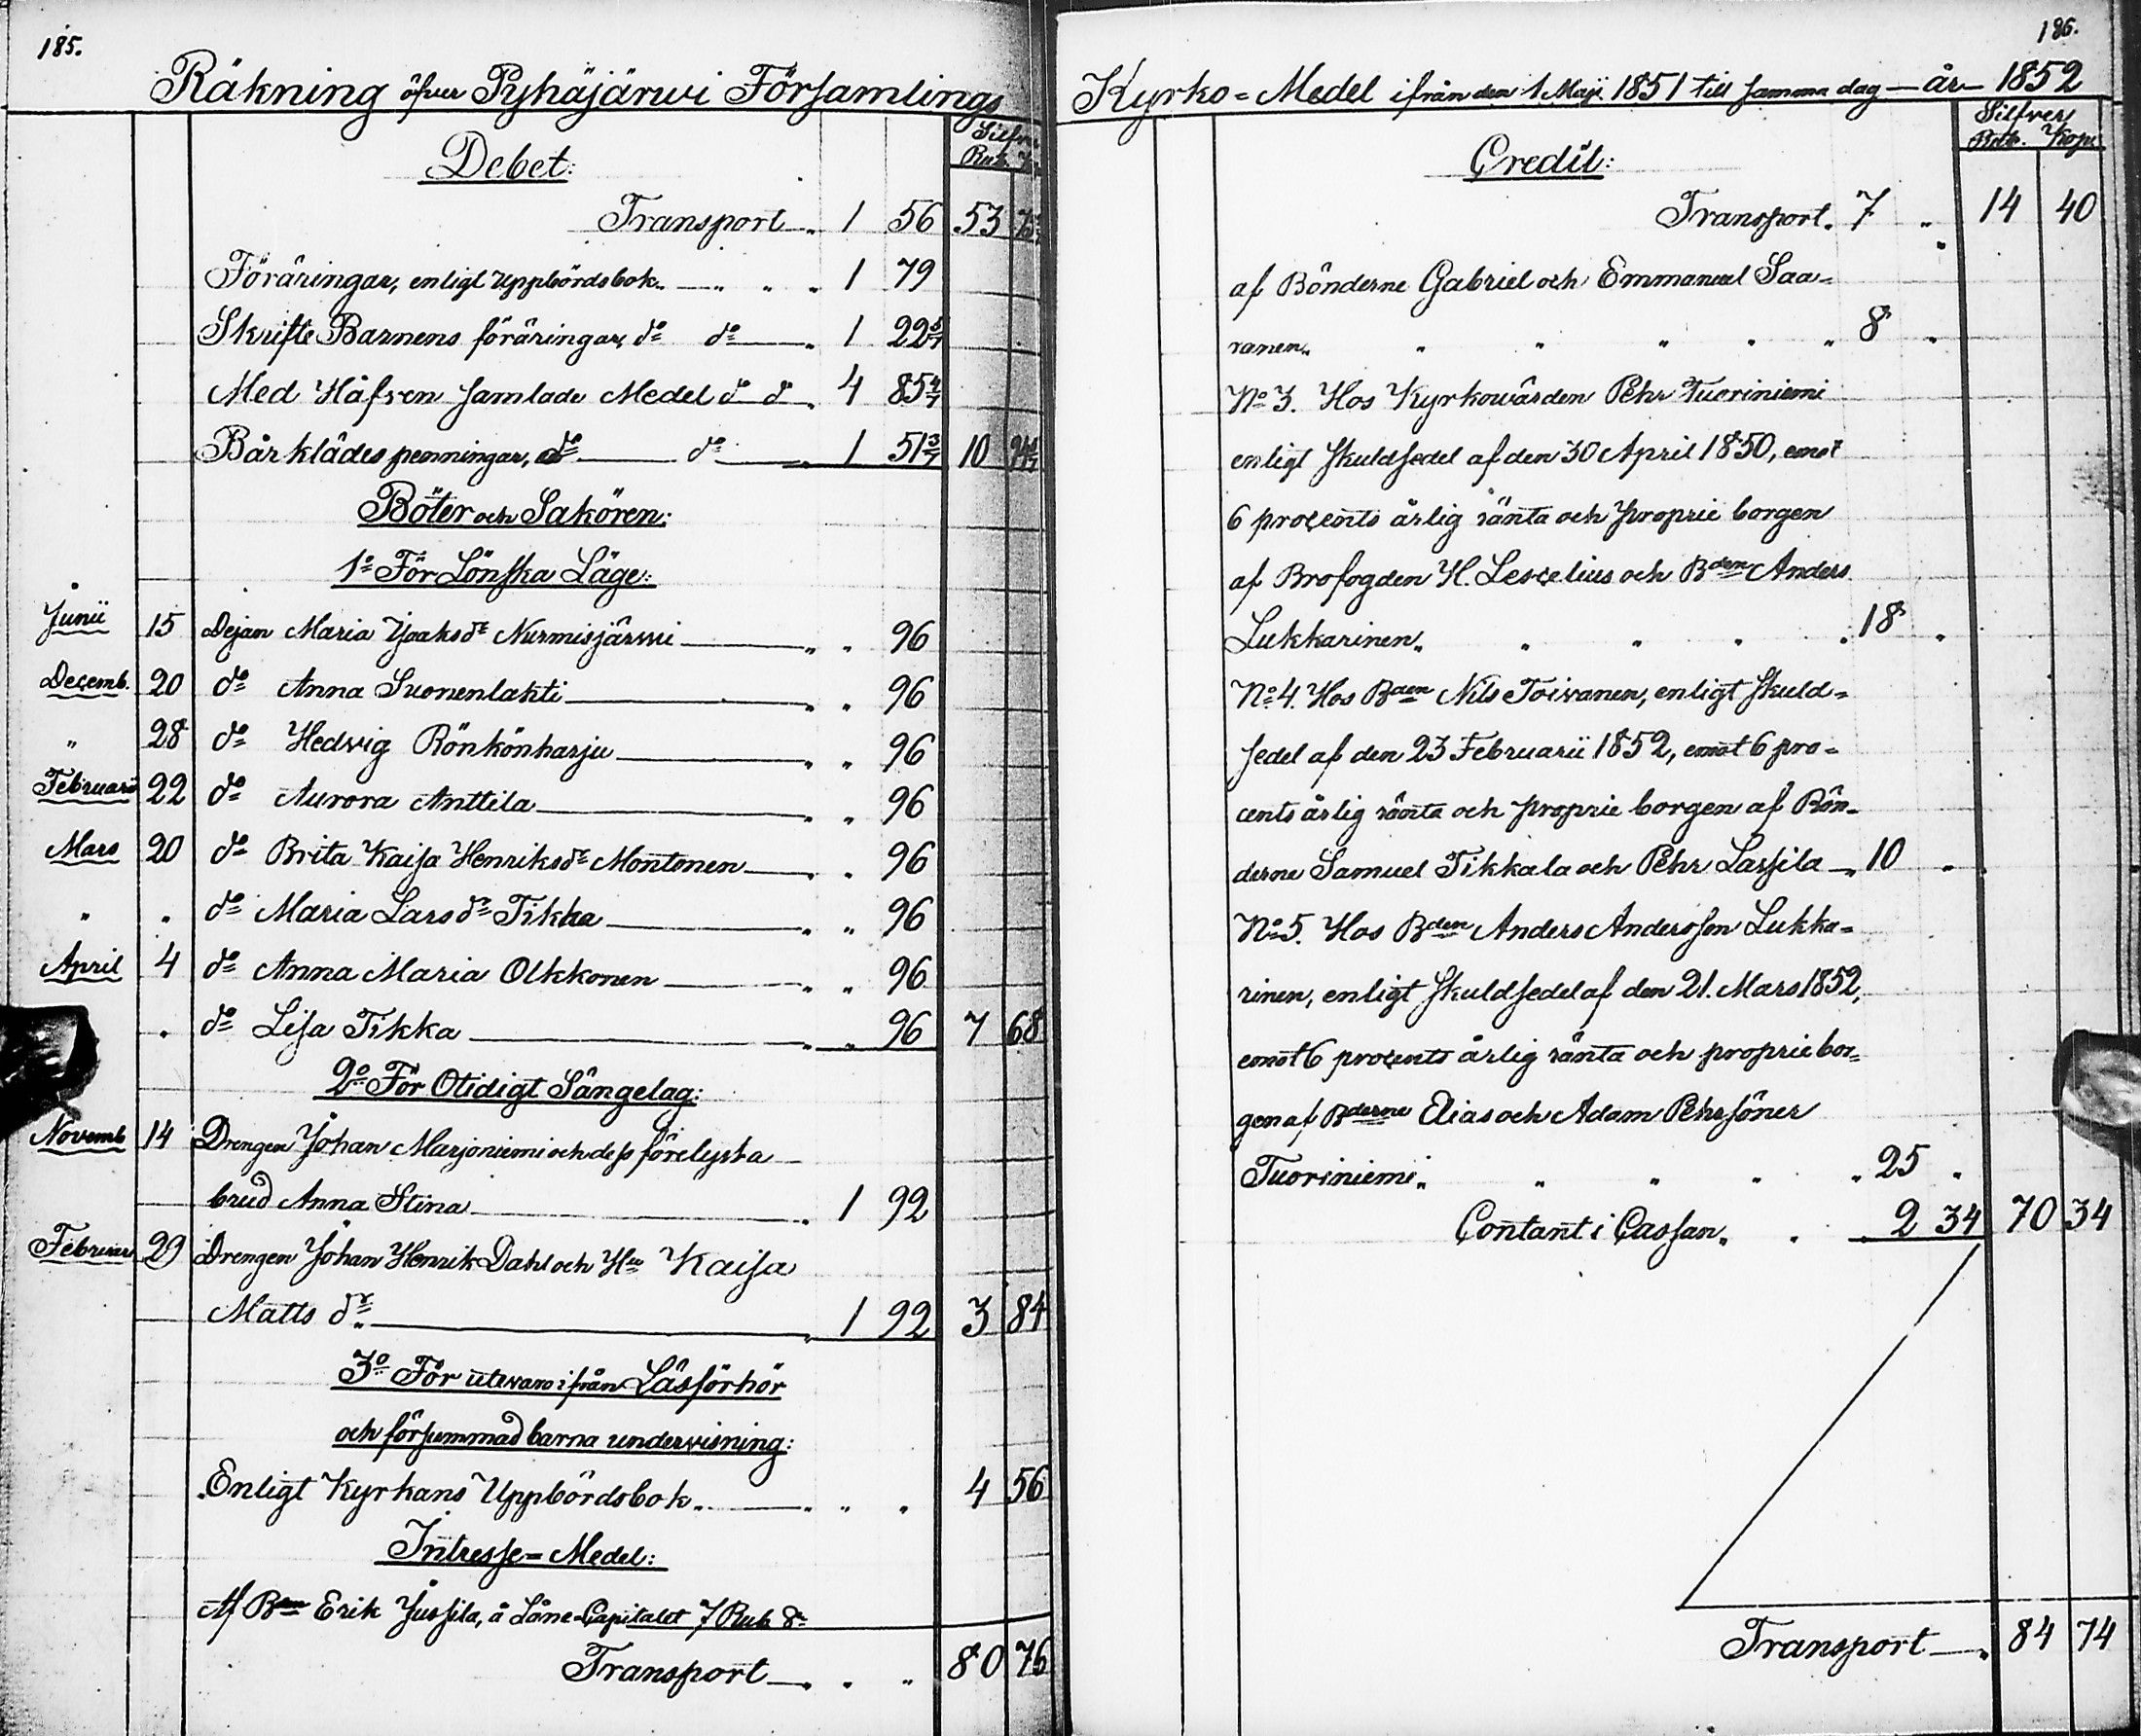 185.
Räkning öfver Pyhäjärwi Församlings
Silfver
Debet:
Rub.
Transport 1 56 53
Föräringar, enligt Uppbördsbok. 1 79
Skrifte Barnens föräringar, do do 1 22 5/7
Med Håfven samlade Medel do do 4 85 4/7
Bårklädes penningar, do do 1 51 3/7 10
Böter och Sakören:
1o För Lönska Läge:
Junii 15 Dejan Maria Isaksdr Nurmisjärwi 96
Decemb. 20 do Anna Suonenlahti 96
" 28 do Hedvig Rönkönharju 96
Februarii 22 do Aurora Anttila 96
Mars 20 do Brita Kaisa Henriksdr Montonen 96
" " do Maria Larsdr Tikka 96
April 4 do Anna Maria Olkkonen 96
" do Lisa Tikka 96 7 68
2o För Otidigt Sängelag:
Novemb 14 Drengen Johan Marjoniemi och dess förelysta
brud Anna Stina 1 92
Februar 29 Drengen Johan Henrik Dahl och Hu Kaisa
Matts dr 1 92 3 84
3o För utevaro ifrån Läsförhör
och försummad barna undervisning:
Enligt Kyrkans Uppbördsbok. 4 56
Intresse=Medel:
Af Bden Erik Jussila, å Låne-Capitalet 7 Rub Sr
Transport 80 76
186.
Kyrko=Medel ifrån den 1 Maji 1851 till samma dag — år — 1852
Silfver
Credit:
Rub. Kop.
Transport. 7 " 14 40
af Bönderne Gabriel och Emmanuel Saa=
ranen. 8 "
No 3. Hos Kyrkowärden Pehr Tuoriniemi
enligt skuldsedel af den 30 April 1850, emot
6 procents årlig ränta och proprie borgen
af Brofogden H. Lescelius och Bden Anders
Lukkarinen. 18 "
No 4. Hos Bden Nils Toivanen, enligt skuld=
sedel af den 23 Februarii 1852, emot 6 pro=
cents årlig ränta och proprie borgen af Bön=
derne Samuel Tikkala och Pehr Lassila 10 "
No 5. Hos Bden Anders Andersson Lukka=
rinen, enligt skuldsedel af den 21. Mars 1852,
emot 6 procents årlig ränta och proprie bor=
gen af Bderne Elias och Adam Pehrsöner
Tuoriniemi. 25 "
Contant i Cassan. 2 34 70 34
Transport 84 74